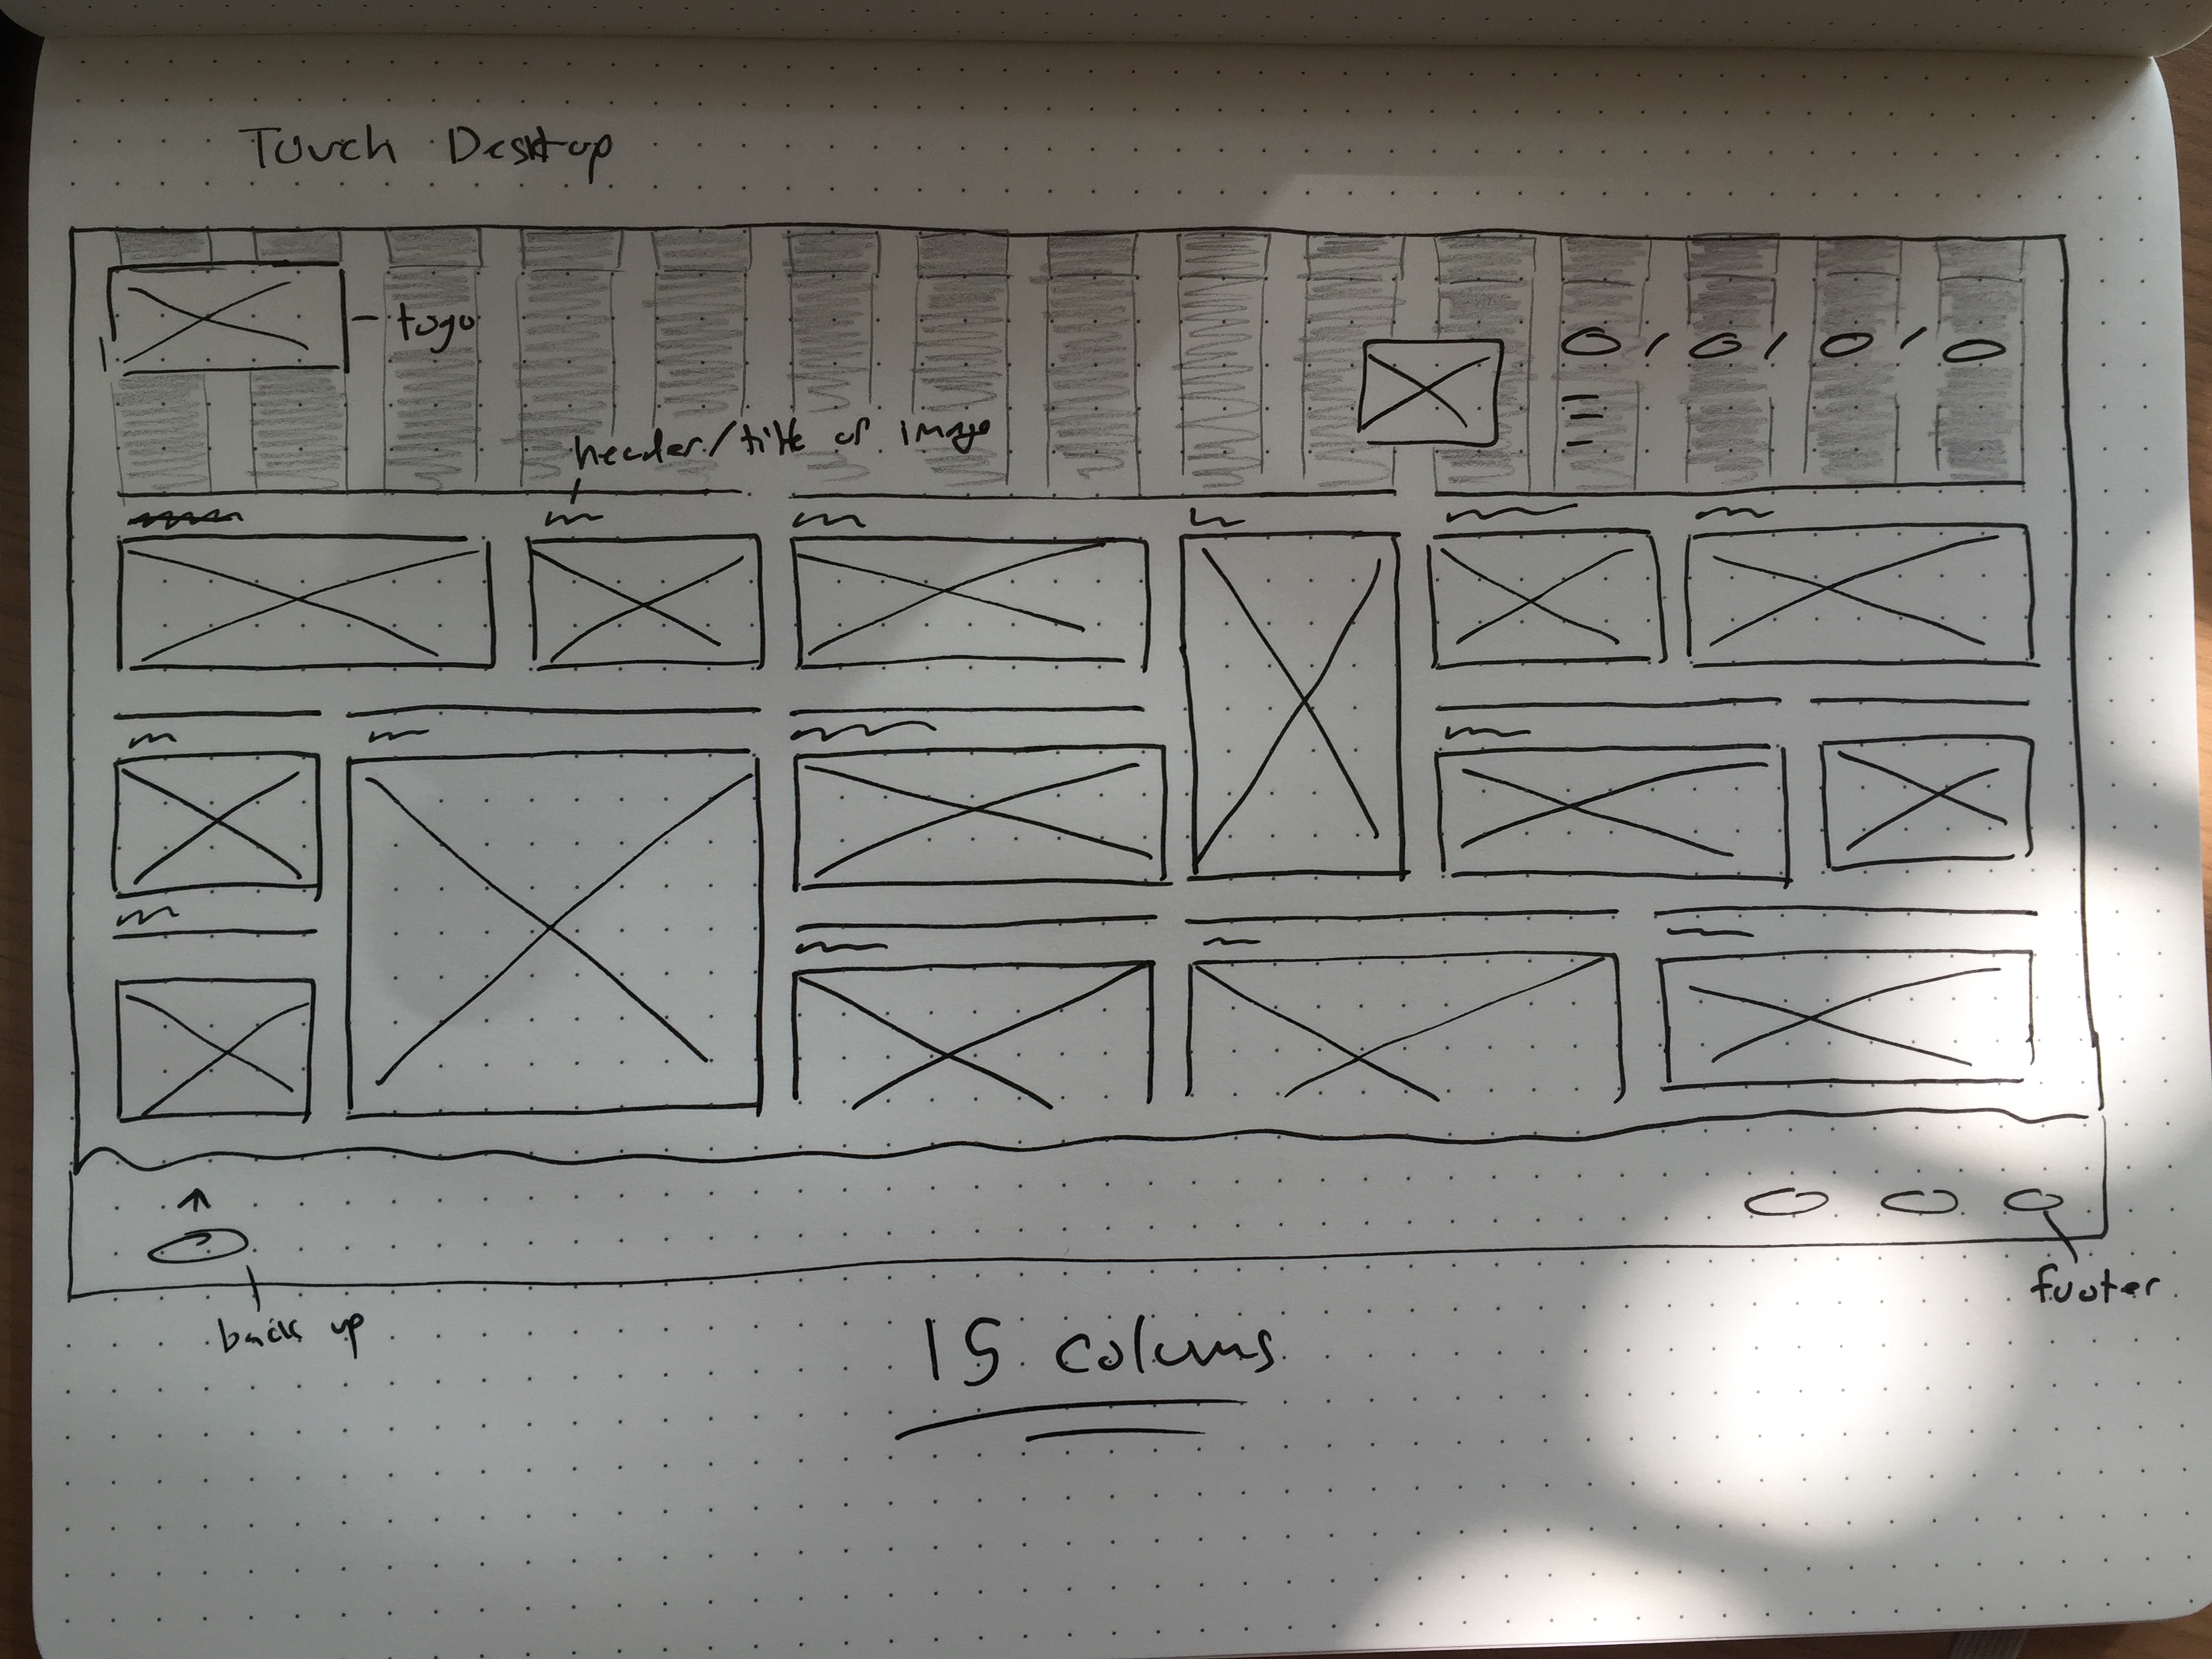 Touch Desktop
logo
header/title of image
back up
footer
15 colums